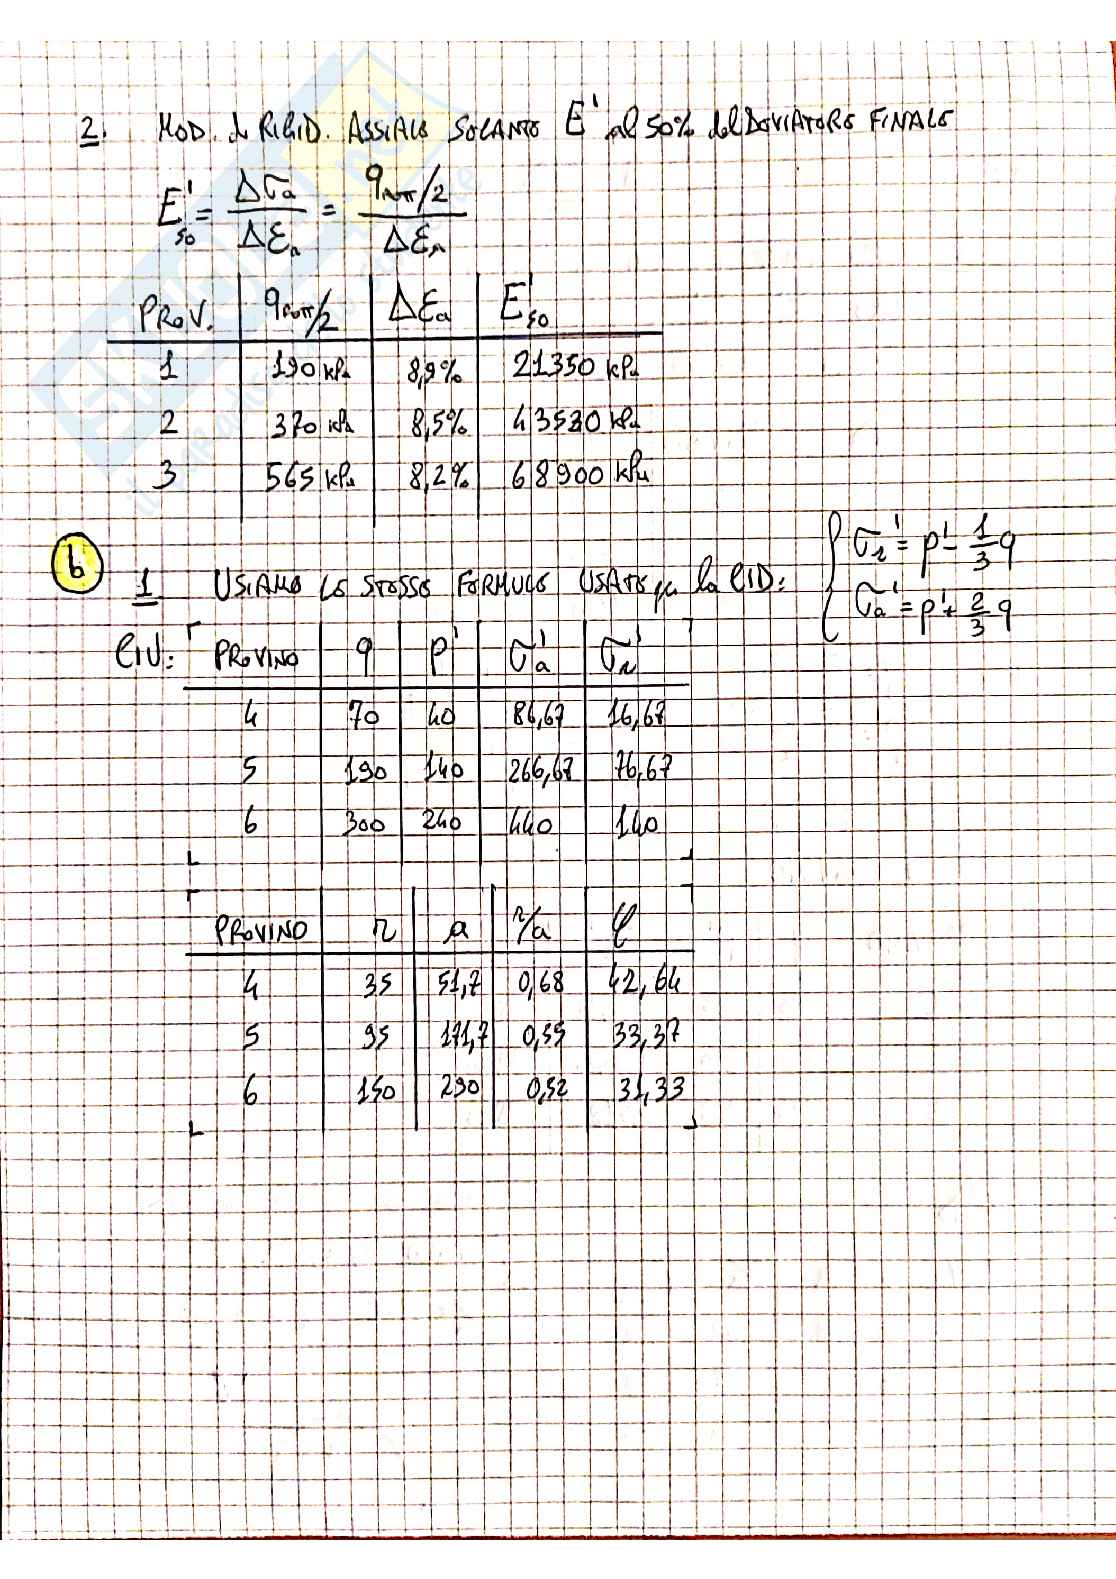 2. MOD. di RIGID. ASSIALE SECANTE E' al 50% del DEVIATORE FINALE
E'50 = Δσa / Δεa = qrott/2 / Δεa
PROV. qrott/2 Δεa E'50
1 190 kPa 8,9% 21350 kPa
2 370 kPa 8,5% 43530 kPa
3 565 kPa 8,2% 68900 kPa
b 1 USIAMO LE STESSE FORMULE USATE per la CID: { σr' = p' - 1/3 q
σa' = p' + 2/3 q
CIU: PROVINO q p' σa' σr'
4 70 40 86,67 16,67
5 190 140 266,67 76,67
6 300 240 440 140
PROVINO r a r/a φ
4 35 51,7 0,68 42,64
5 95 171,7 0,55 33,37
6 150 290 0,52 31,33